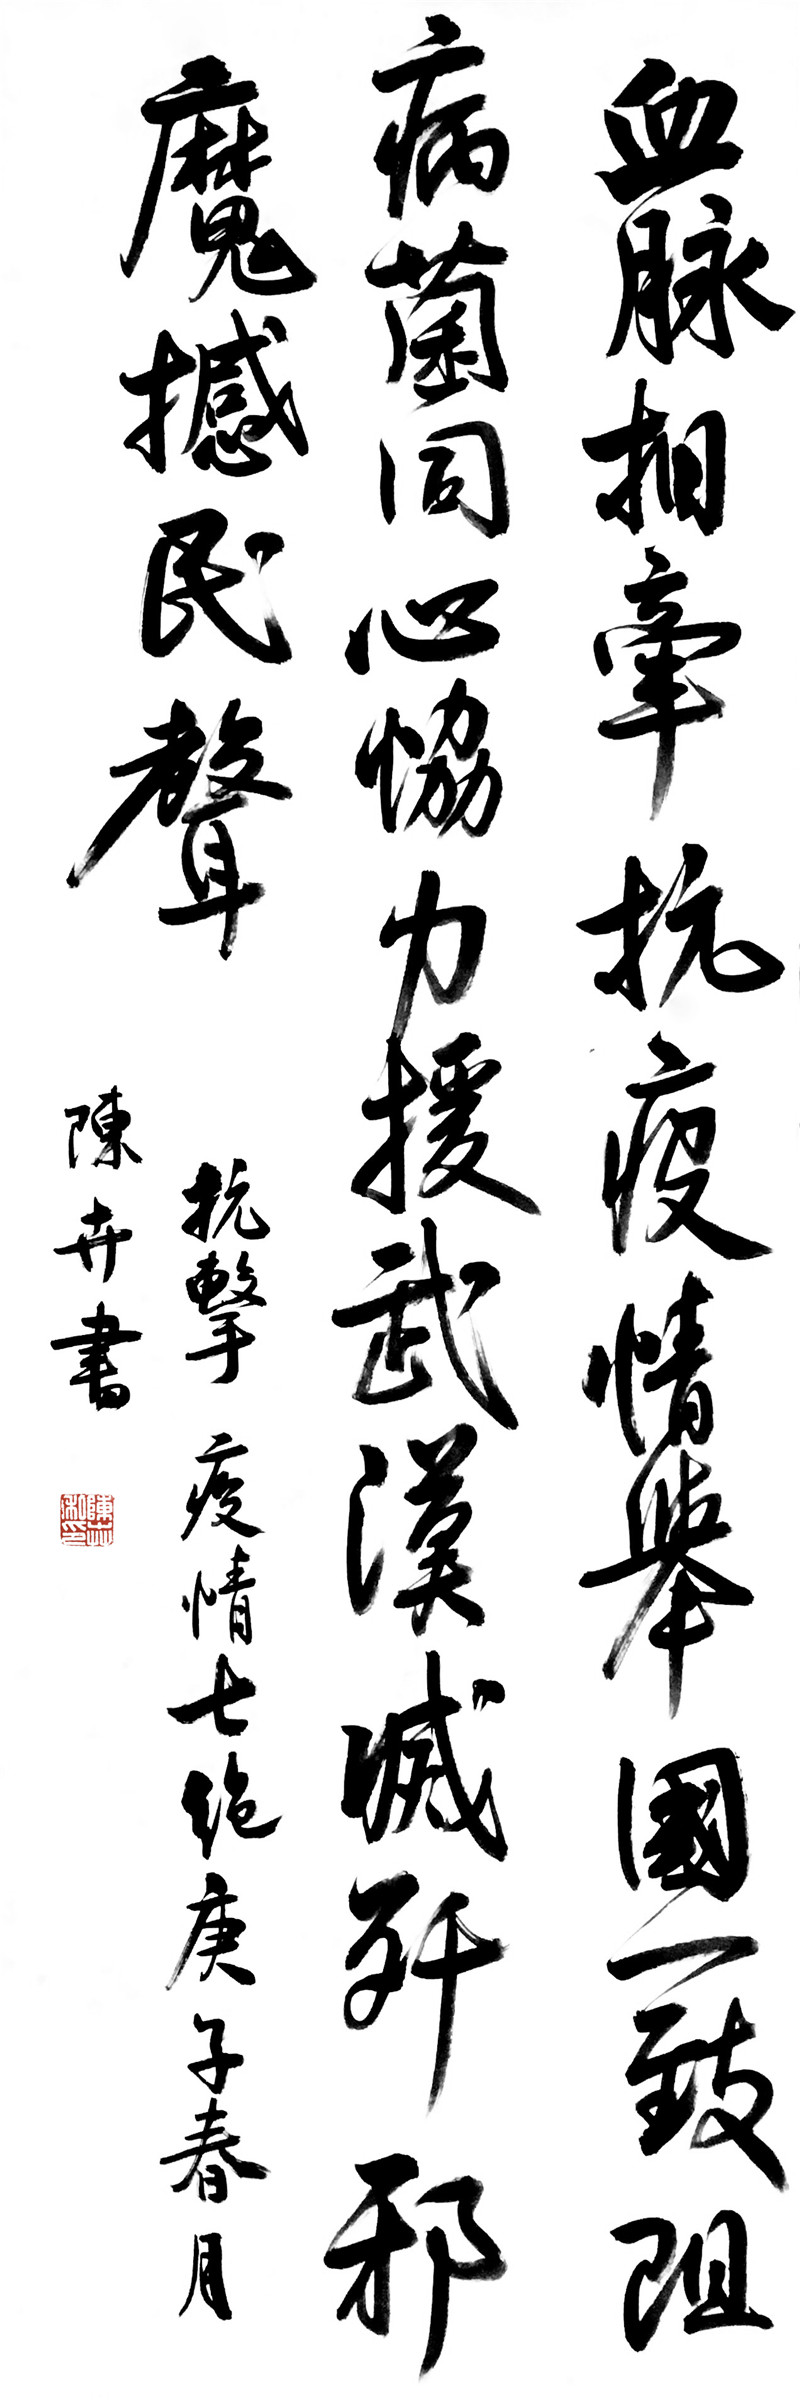 血脉相牽抗疫情舉國一致阻
病菌同心恊力援武漢滅歼邪
魔撼民聲
抗擊疫情七绝庚子春月
陳卉書
陳卉私印